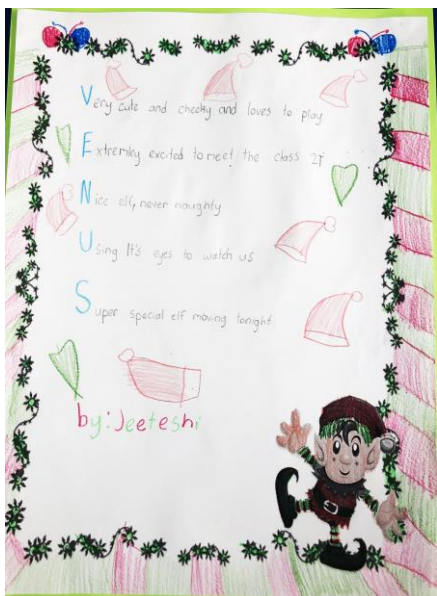 Very cute and cheeky and loves to play
Extremley excited to meet the class 2I
Nice elf, never naughty
Using It's eyes to watch us
Super special elf moving tonight
by: Jeeteshi